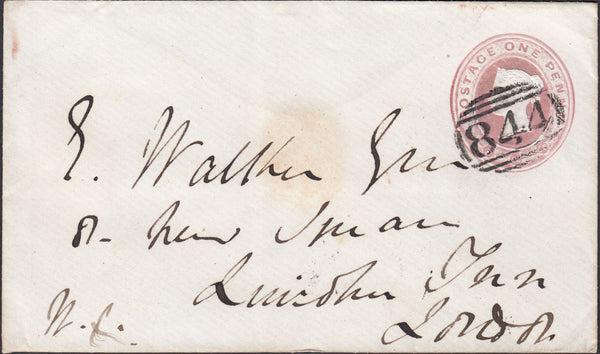 POSTAGE ONE PENNY
844
E. Walker Esq
8 New Square
Lincolns Inn
W.C. London